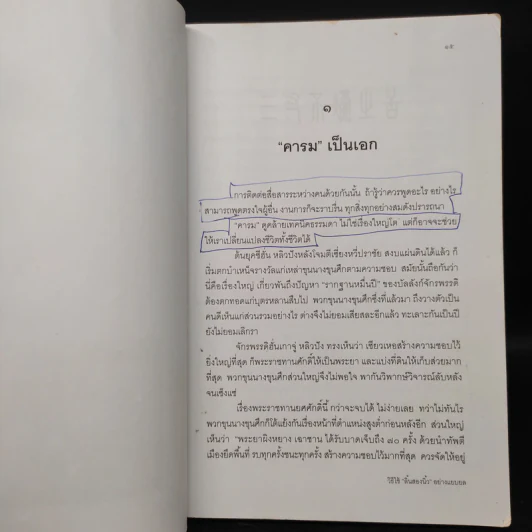 ๑๕
๑
“คารม” เป็นเอก
การติดต่อสื่อสารระหว่างคนด้วยกันนั้น ถ้ารู้ว่าควรพูดอะไร อย่างไร
สามารถพูดตรงใจผู้อื่น งานการก็จะราบรื่น ทุกสิ่งทุกอย่างสมดังปรารถนา
“คารม” ดูคล้ายเทคนิคธรรมดา ไม่ใช่เรื่องใหญ่โต แต่ก็อาจจะช่วย
ให้เราเปลี่ยนแปลงชีวิตทั้งชีวิตได้
ต้นยุคซีฮั่น หลิวปังหลังโจมตีเซี่ยงหวี่ปราชัย สงบแผ่นดินได้แล้ว ก็
เริ่มตกบำเหน็จรางวัลแก่เหล่าขุนนางขุนศึกตามความชอบ สมัยนั้นถือกันว่า
นี่คือเรื่องใหญ่ เกี่ยวพันถึงปัญหา “รากฐานหมื่นปี” ของบัลลังก์จักรพรรดิ
ต้องตกทอดแก่บุตรหลานสืบไป พวกขุนนางขุนศึกซึ่งที่แล้วมา ถึงวางตัวเป็น
คนดีเห็นแก่ส่วนรวมอย่างไร ต่างจึงไม่ยอมเสียสละอีกแล้ว ทะเลาะกันเป็นปี
ยังไม่ยอมเลิกรา
จักรพรรดิฮั่นเกาจู่ หลิวปัง ทรงเห็นว่า เซียวเหอสร้างความชอบไว้
ยิ่งใหญ่ที่สุด ก็พระราชทานศักดิ์ให้เป็นพระยา และแบ่งที่ดินให้เก็บส่วยมาก
ที่สุด พวกขุนนางขุนศึกส่วนใหญ่จึงไม่พอใจ พากันวิพากษ์วิจารณ์ลับหลัง
จนเซ็งแซ่
เรื่องพระราชทานยศศักดิ์นี้ กว่าจะจบได้ ไม่ง่ายเลย ทว่าไม่ทันไร
พวกขุนนางขุนศึกก็ได้แย้งกันเรื่องหน้าที่ตำแหน่งสูงต่ำก่อนหลังอีก ส่วนใหญ่
เห็นว่า “พระยาผิงหยาง เฉาซาน ได้รับบาดเจ็บถึง ๗๐ ครั้ง ด้วยนำทัพตี
เมืองยึดพื้นที่ รบทุกครั้งชนะทุกครั้ง สร้างความชอบไว้มากที่สุด ควรจัดให้อยู่
วิธีใช้ “ลิ้นสองนิ้ว” อย่างแยบยล